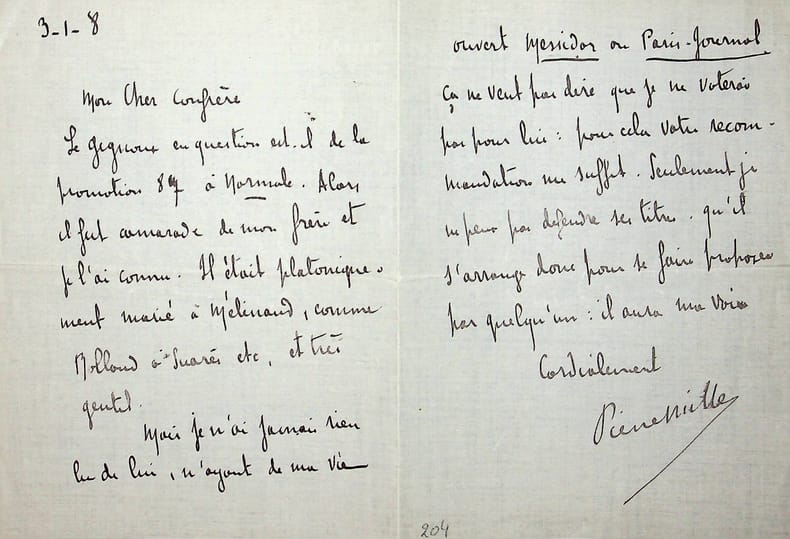 3-1-8
Mon Cher Confrère
Le Gignoux en question est-il de la
promotion 87 à Normale. Alors
il fut camarade de mon frère et
je l'ai connu. Il était platonique-
ment marié à Mélinand, comme
Rolland à Suarès etc, et très
gentil.
Mais je n'ai jamais rien
lu de lui, n'ayant de ma vie
ouvert Messidor ou Paris-Journal
ça ne veut pas dire que je ne voterai
pas pour lui : pour cela votre recom-
mandation me suffit. Seulement je
ne peux pas défendre ses titres. qu'il
s'arrange donc pour se faire proposer
par quelqu'un : il aura ma voix
Cordialement
Pierre Mille
204